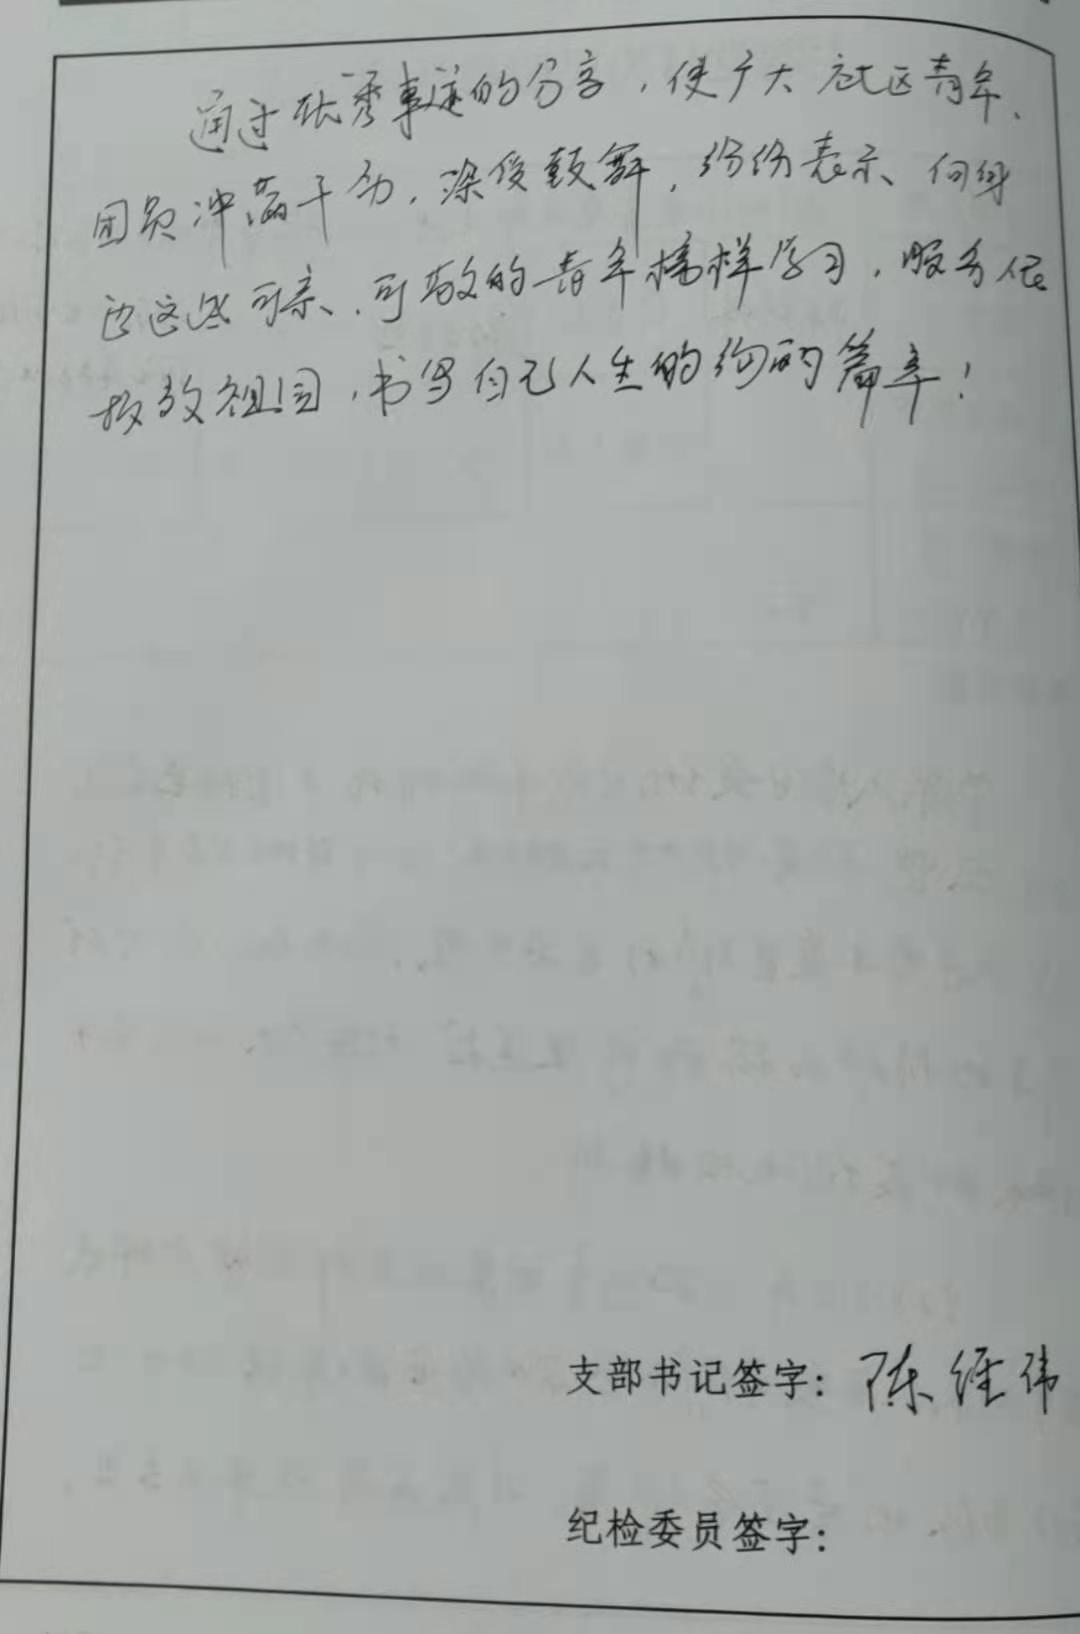 通过优秀事迹的分享，使广大社区青年、
团员冲满干劲，深受鼓舞，纷纷表示、向身
边这些可亲、可敬的青年榜样学习，服务人民
报效祖国，书写自己人生的绚丽篇章！
支部书记签字：陈维伟
纪检委员签字：